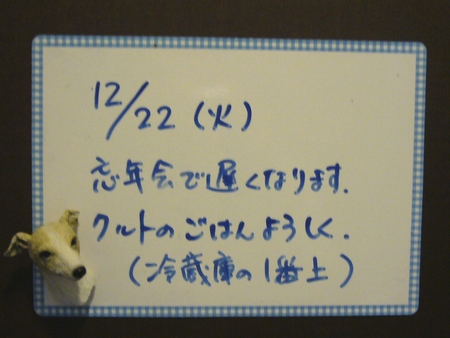 12/22 (火)
忘年会で遅くなります.
クルトのごはんよろしく.
(冷蔵庫の1番上)